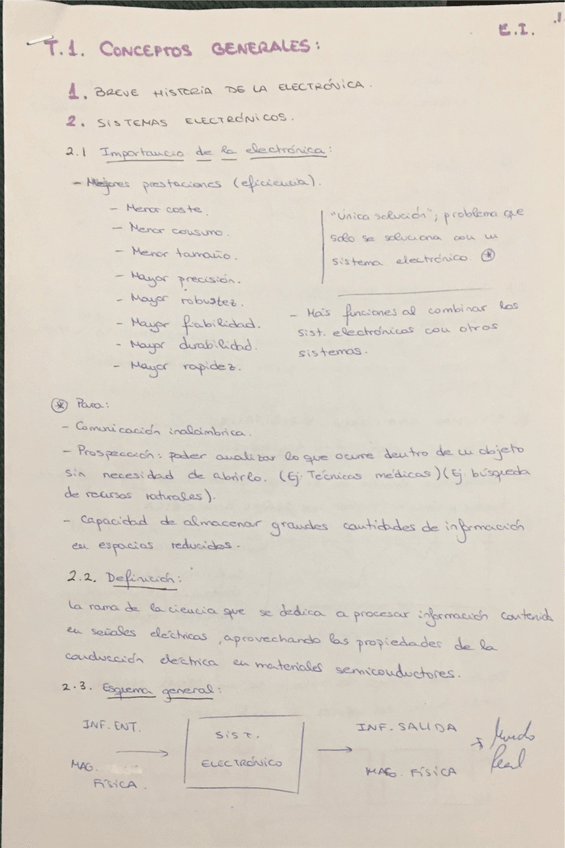 E.I. .1
T.1. CONCEPTOS GENERALES:
1. BREVE HISTORIA DE LA ELECTRÓNICA.
2. SISTEMAS ELECTRÓNICOS.
2.1 Importancia de la electrónica:
- Mejores prestaciones (eficiencia).
- Menor coste.
- Menor consumo.
- Menor tamaño.
- Mayor precisión.
- Mayor robustez.
- Mayor fiabilidad.
- Mayor durabilidad.
- Mayor rapidez.
"Única solución"; problema que
solo se soluciona con un
sistema electrónico *
- Más funciones al combinar los
sist. electrónicos con otros
sistemas.
* Para:
- Comunicación inalámbrica.
- Prospección: poder analizar lo que ocurre dentro de un objeto
sin necesidad de abrirlo. (Ej: Técnicas médicas) (Ej: búsqueda
de recursos naturales).
- Capacidad de almacenar grandes cantidades de información
en espacios reducidos.
2.2. Definición:
La rama de la ciencia que se dedica a procesar información contenida
en señales eléctricas, aprovechando las propiedades de la
conducción eléctrica en materiales semiconductores.
2.3. Esquema general:
INF. ENT.
MAG.
FÍSICA.
SIST.
ELECTRÓNICO
INF. SALIDA
MAG. FÍSICA
Mundo
Real